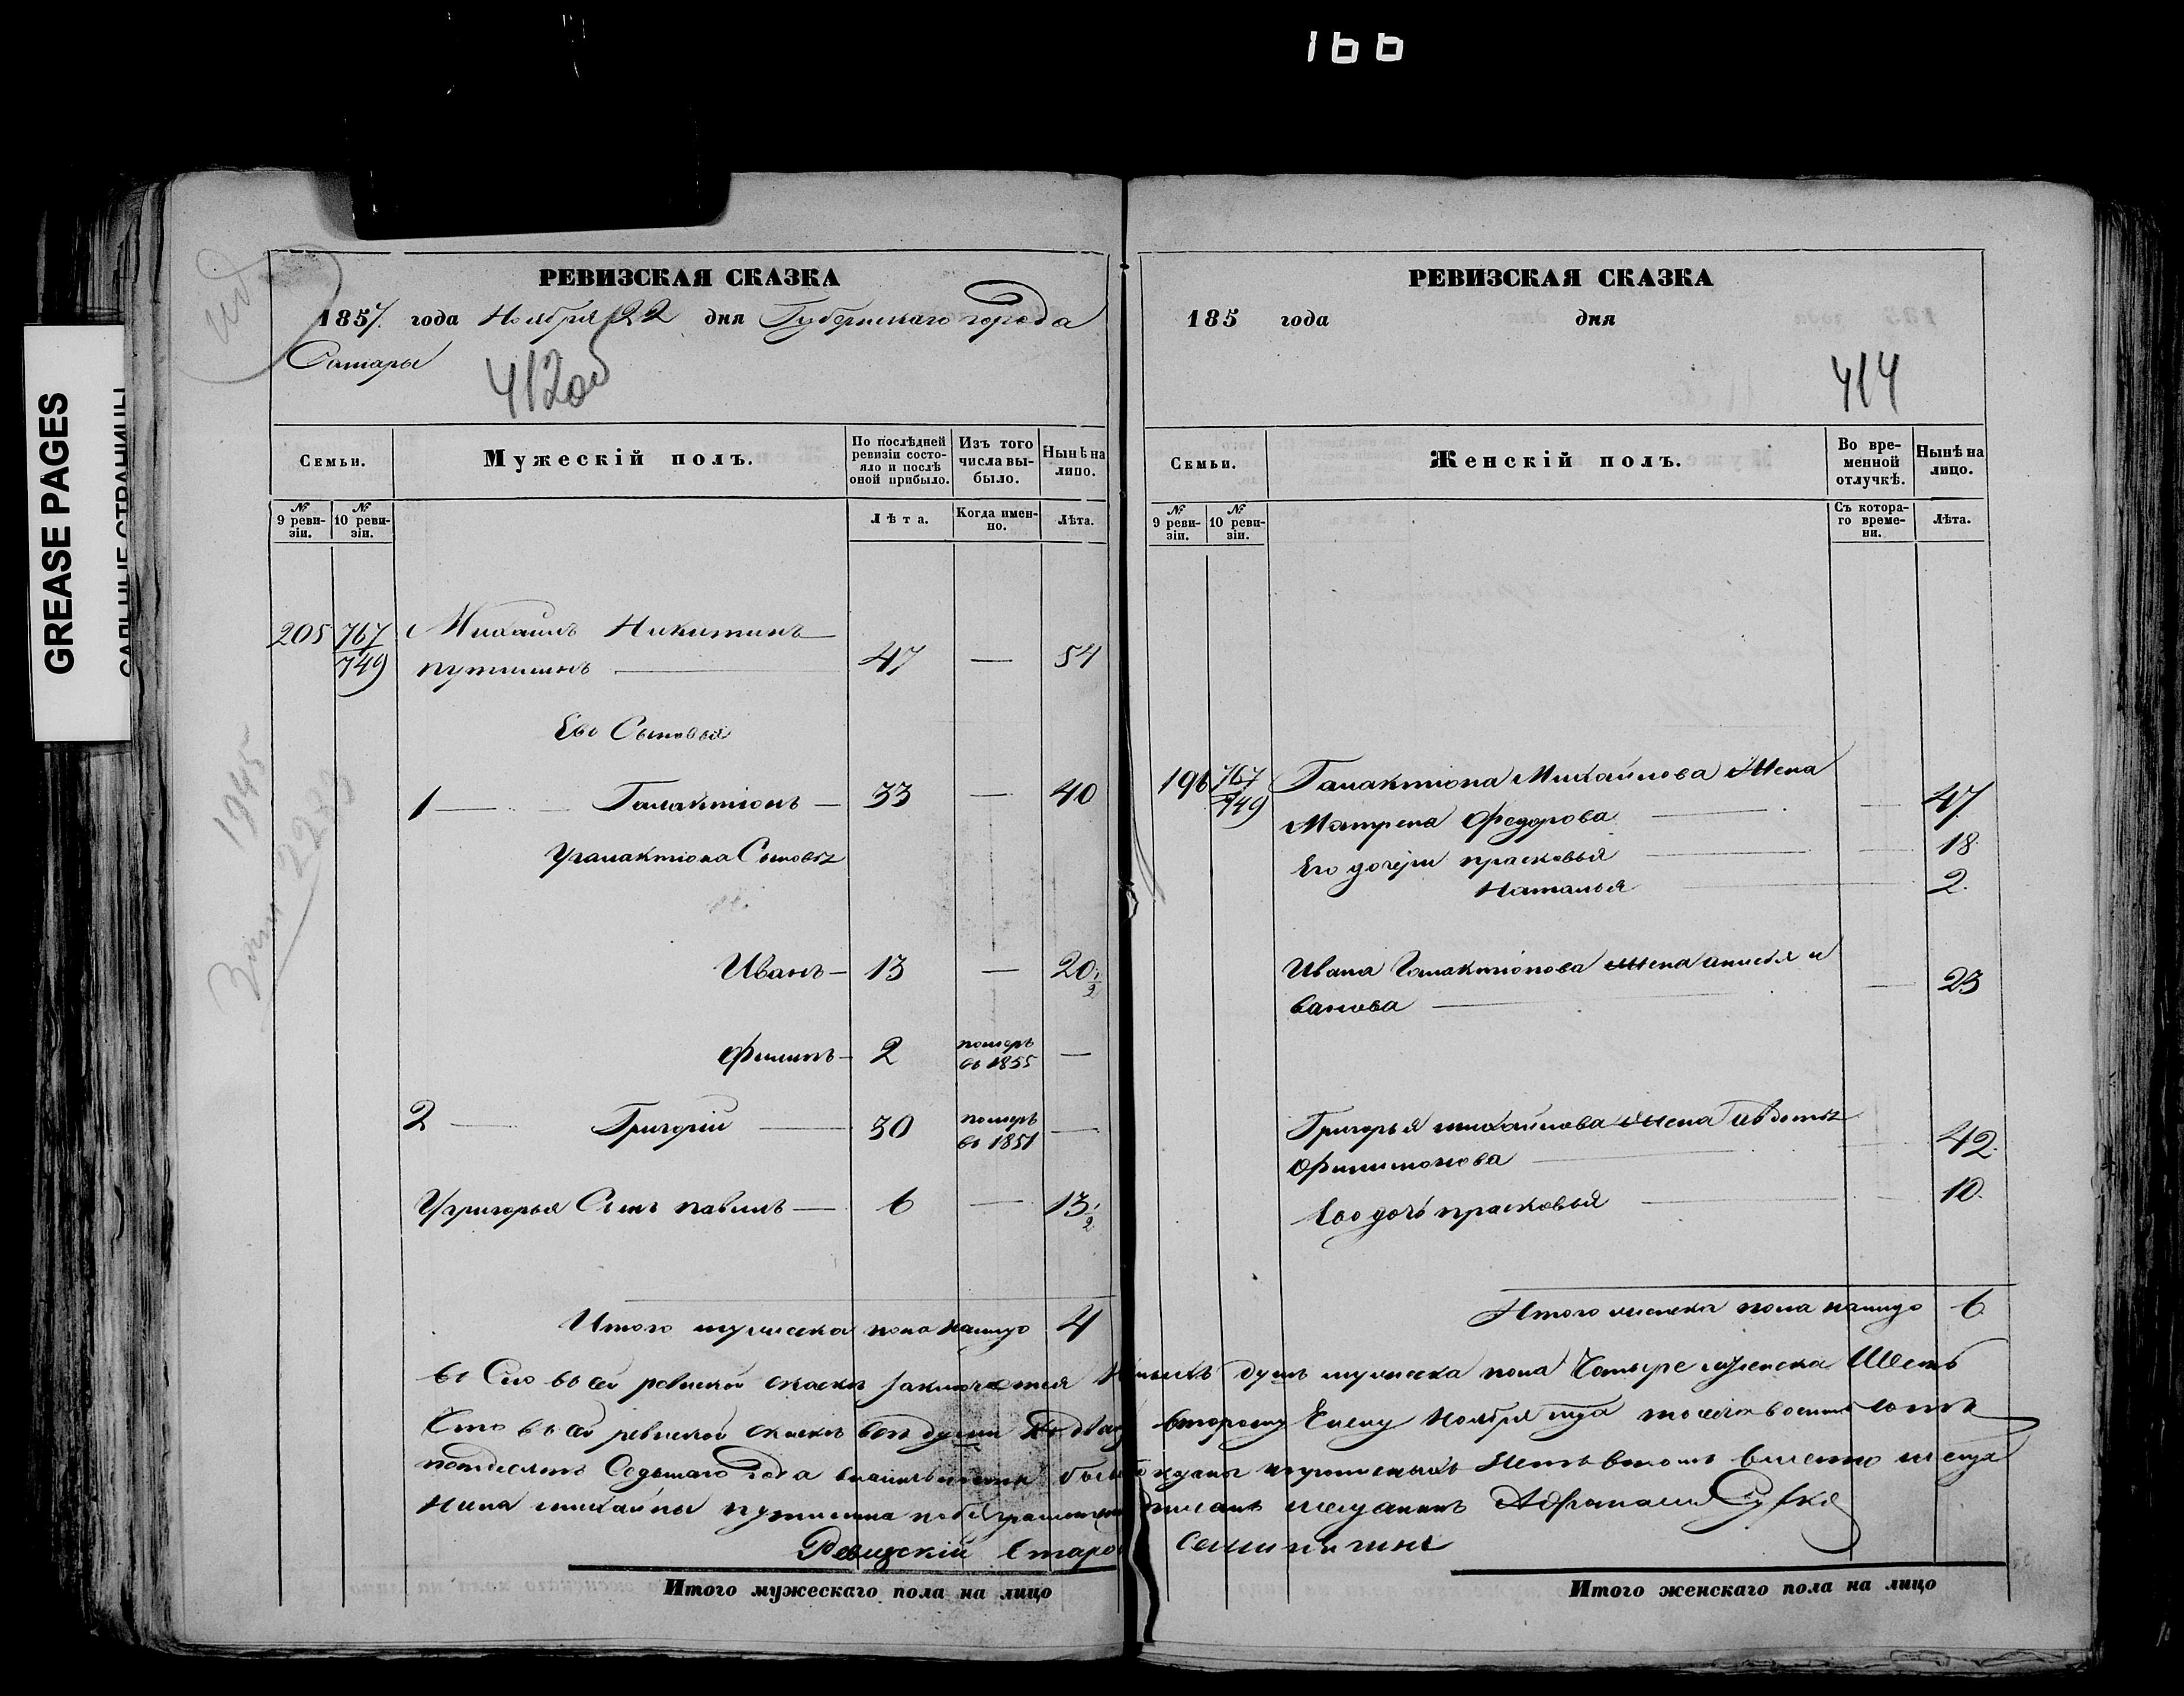 166
GREASE PAGES
САЛЬНЫЕ СТРАНИЦЫ
РЕВИЗСКАЯ СКАЗКА
1857. года Ноября 22 дня Губернскаго города
Самары
412об
Семьи.
Мужескій полъ.
По послѣдней ревизіи состояло и послѣ оной прибыло.
Изъ того числа выбыло.
Нынѣ на лицо.
№ 9 ревизіи.
№ 10 ревизіи.
Лѣта.
Когда именно.
Лѣта.
205 767 Михаилъ Никитинъ
749 путилинъ 47 — 54
Ево Сыновья
1 — Галактіонъ — 33 — 40
У галактіона Сыновья
Иванъ — 13 — 20 1/2
Филипъ — 2 померъ въ 1855 —
2 — Григорій — 30 померъ въ 1851 —
У григорья Сынъ павилъ — 6 — 13 1/2
Итого мужеска пола налицо 4
1945
2283
РЕВИЗСКАЯ СКАЗКА
185 года дня
414
Семьи.
Женскій полъ.
Во временной отлучкѣ.
Нынѣ на лицо.
№ 9 ревизіи.
№ 10 ревизіи.
Съ котораго времени.
Лѣта.
196 767 Галактіона Михайлова Жена
749 Матрена Федорова — 47.
Его дочери прасковья — 18
Наталья — 2.
Ивана Галактіонова Жена анисья и
ванова — 23
Григорья михайлова Жена Авдотья
Филимонова — 42.
Ево дочь прасковья — 10.
Итого женска пола налицо 6
ревиской скаски заключается душъ мужеска пола Четыре женска Шесть
Что в сей ревиской скаске все души
пятдесятъ Седьмаго Года
нина михайлы путилина
Ревизскій Старо
Итого мужескаго пола на лицо
Итого женскаго пола на лицо